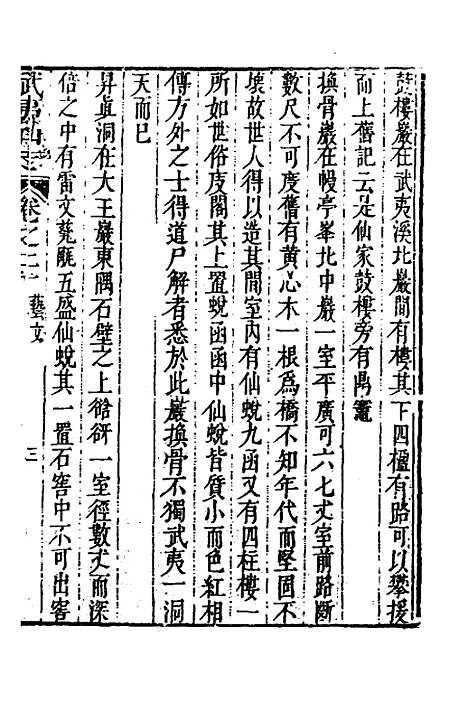 鼓樓巖在武夷溪北巖間有樓其下四楹有路可以攀援
而上舊記云是仙家鼓樓旁有鼎竈
換骨巖在幔亭峯北中巖一室平廣可六七丈室前路斷
數尺不可度舊有黃心木一根爲橋不知年代而堅固不
壞故世人得以造其間室內有仙蛻九函又有四柱樓一
所如世俗庋閣其上置蛻函函中仙蛻皆質小而色紅相
傳方外之士得道尸解者悉於此巖換骨不獨武夷一洞
天而已
昇眞洞在大王巖東隅石壁之上谽谺一室徑數丈而深
倍之中有雷文甆甒五盛仙蛻其一置石窖中不可出窖
武夷山志 卷之二十 藝文 三